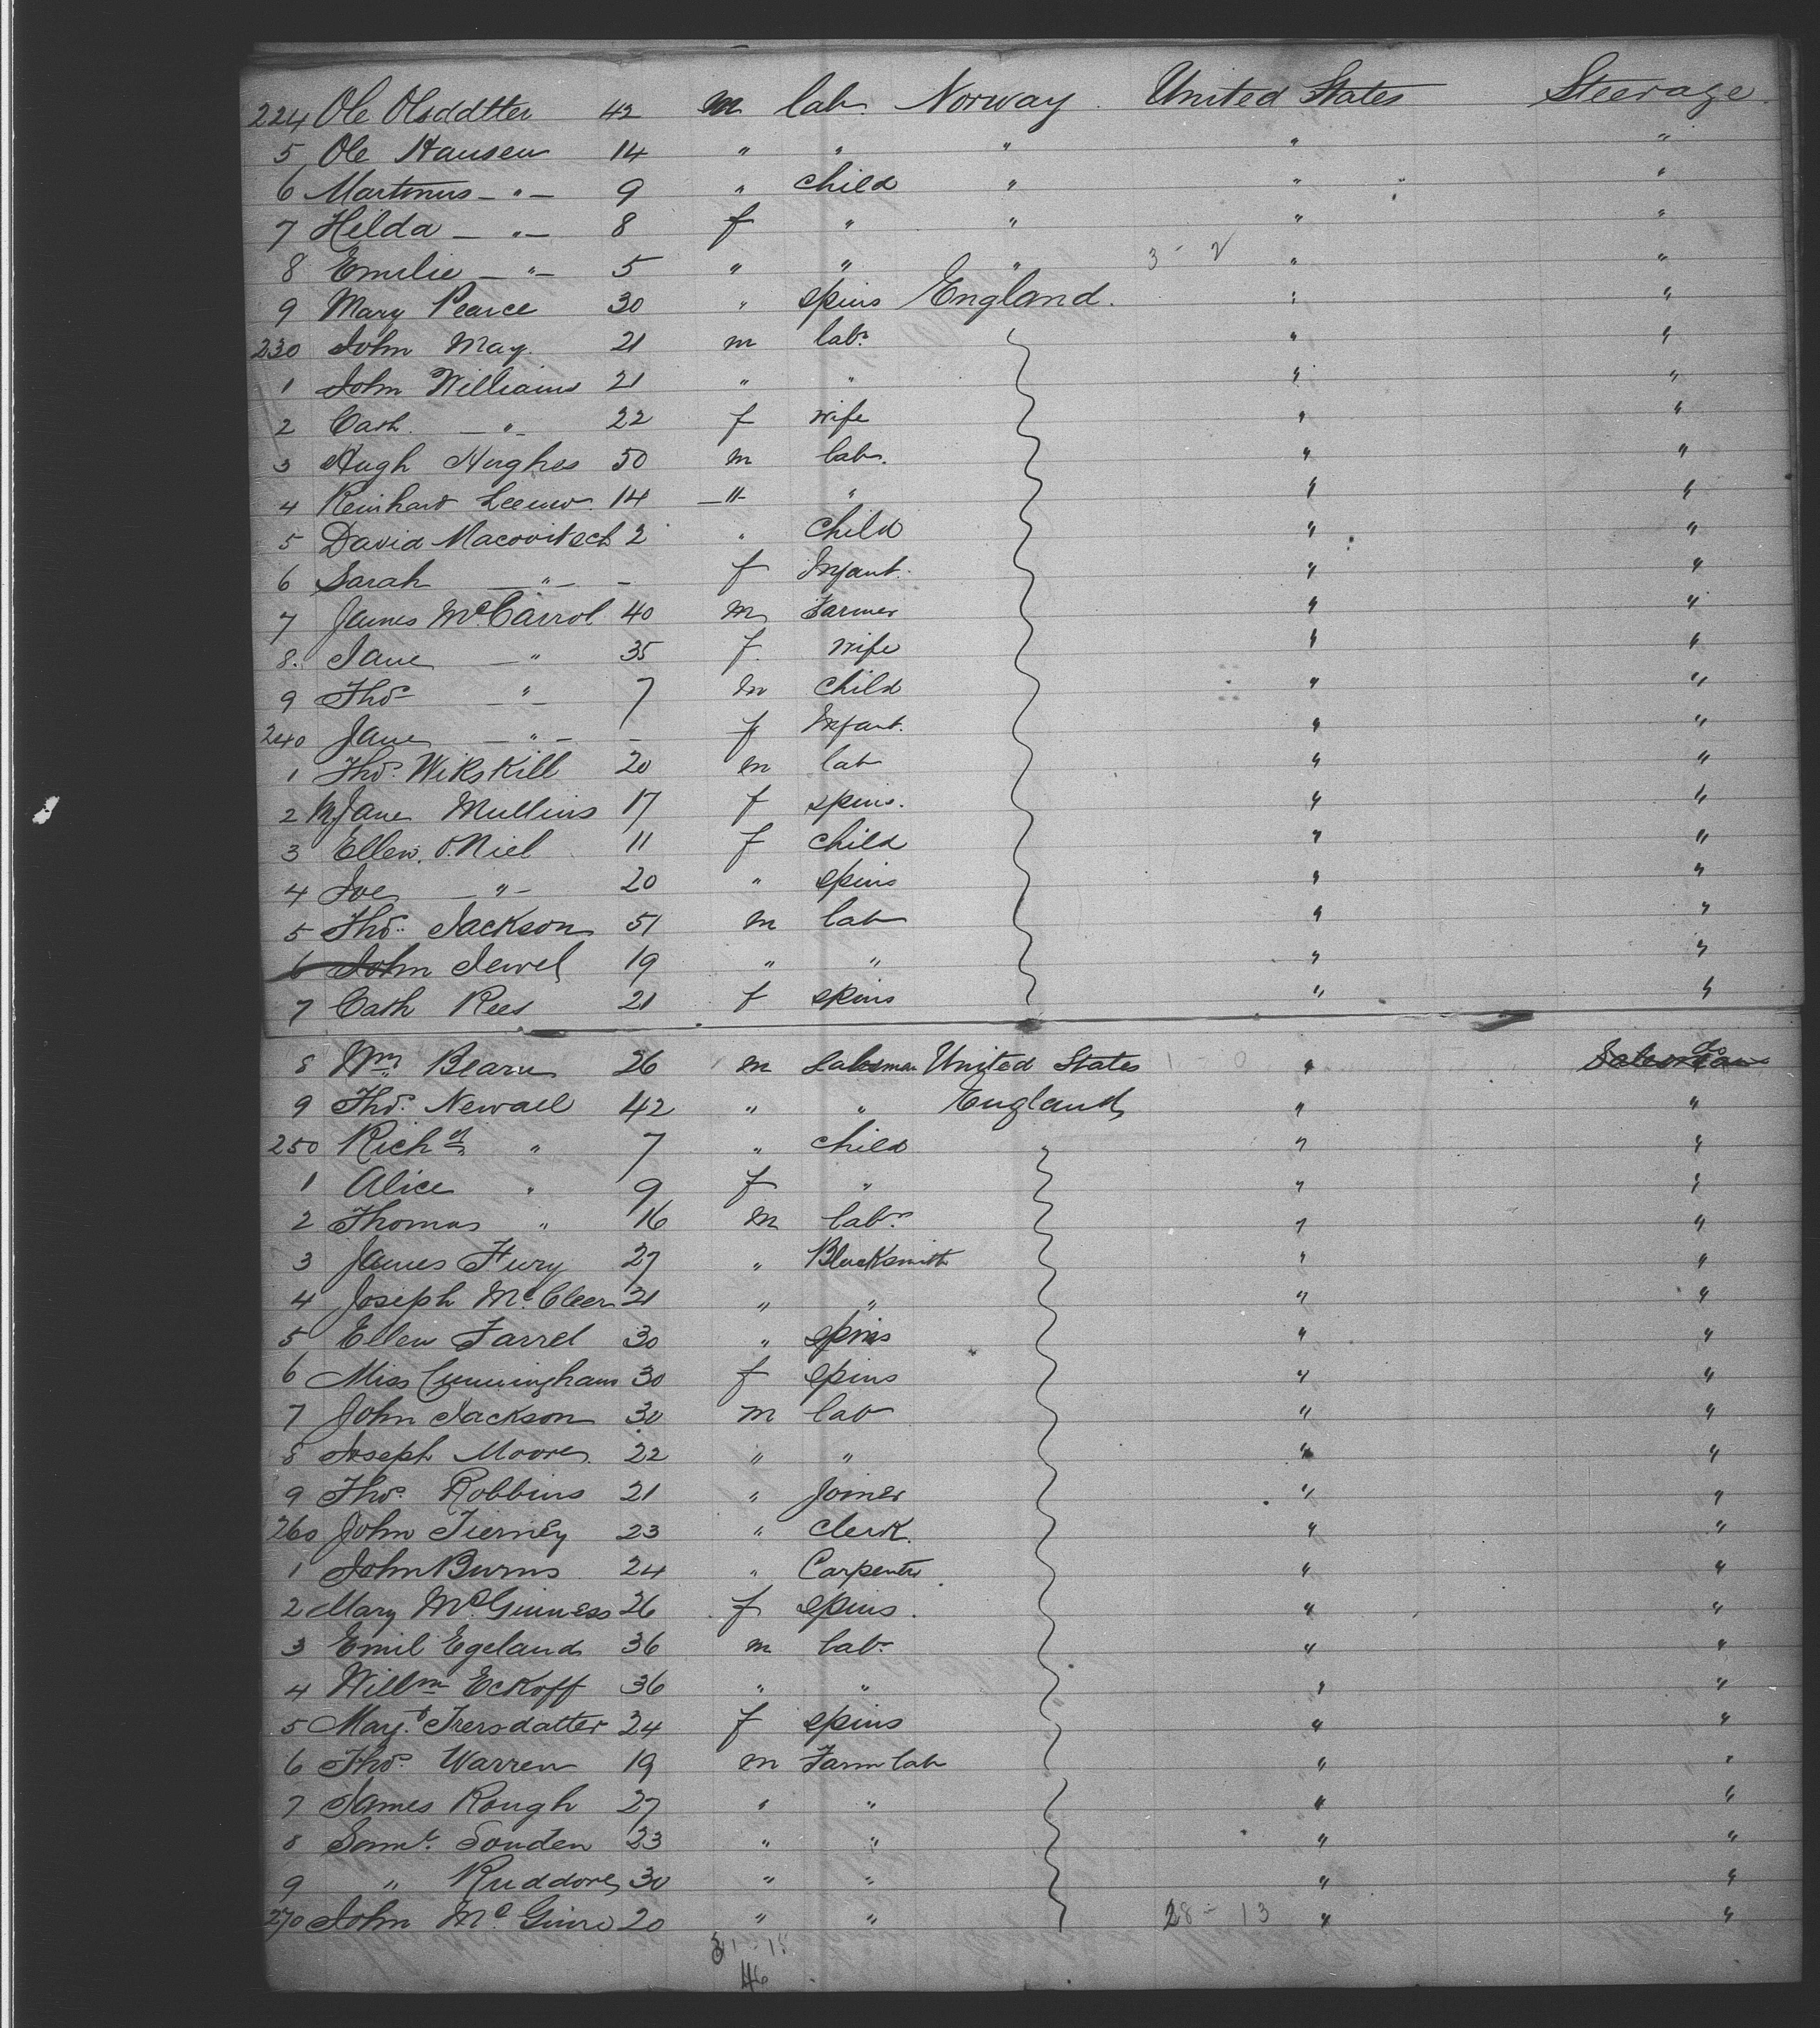 224 Ole Olsddtter 42 m lab. Norway. United States Steerage.
5 Ole Hansen 14 " " " " "
6 Martinus — " — 9 " child " " "
7 Hilda — " — 8 f " " " "
8 Emilie — " — 5 " " " 3 - 2 " "
9 Mary Pearce 30 " spins England. " "
230 John May. 21 m labr. " "
1 John Williams 21 " " " "
2 Cath. — " — 22 f wife " "
3 Hugh Hughes 50 m lab. " "
4 Reinhard Leeuw. 14 — " — " " "
5 David Macovitsch 2 " child " "
6 Sarah — " — - f Infant. " "
7 James McCarrol 40 m Farmer " "
8. Jane — " 35 f. wife " "
9 Thos — " — 7 m child " "
240 Jane — " — - f Infant. " "
1 Thos. Wikskill 20 m lab " "
2 M Jane Mullins 17 f spins. " "
3 Ellen. O.Niel 11 f child " "
4 Joe — " — 20 " spins " "
5 Thos. Jackson 51 m lab " "
6 John Jewel 19 " " " "
7 Cath Rees 21 f spins " "
8 Wm. Bearn 26 m Salesman United States 1 0 " Salesman do
9 Thos. Newall 42 " " England " "
250 Richd " 7 " child " "
1 Alice " 9 f " " "
2 Thomas " 16 m labr. " "
3 James Fury 27 " Blacksmith " "
4 Joseph McCleen 21 " " " "
5 Ellen Farrel 30 " spins " "
6 Miss Cunningham 30 f spins " "
7 John Jackson 30 m lab " "
8 Joseph Moore 22 " " " "
9 Thos. Robbins 21 " Joiner " "
260 John Tierney 23 " Clerk. " "
1 John Burns 24 " Carpenter " "
2 Mary McGuinness 26 f spins. " "
3 Emil Egeland 36 m labr " "
4 Willm Eckoff 36 " " " "
5 Magt. Iversdatter 24 f spins " "
6 Thos. Warren 19 m Farm lab " "
7 James Rough 27 " " " "
8 Saml. Souden 23 " " " "
9 " Ruddore 30 " " " "
270 John Mc 20 " " 28 - 13 " "
31 - 15
46